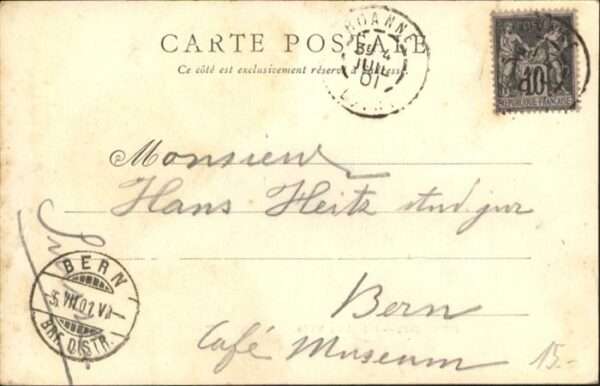 CARTE POSTALE
Ce côté est exclusivement réservé à l'adresse.
ROANNE
4
JUIL
01
LOIRE
POSTES
10
REPUBLIQUE FRANÇAISE
Monsieur
Hans Heitz stud jur
Bern
Café Museum
15-
BERN
5.VII.01.V
BRF. DISTR.